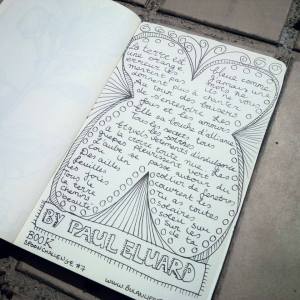 la terre est bleue comme
une orange jamais une
erreur les mots ne
mentent pas ils ne vous
donnent plus à chanter
au tour des baisers
de s'entendre les
fous et les amours
elle sa bouche d'alliance
tous les secrets tous
les sourires
et quels vêtements d'indulgence
à la croire toute nue les
guêpes fleurissent vert
l'aube se passe autour du
cou un collier de fenêtres
des ailes couvrent
les feuilles tu as toutes
les joies solaires
tout le soleil sur
la terre sur les
chemins de ta
beauté
BY PAUL ELUARD
BOOK
SPOON CHALLENGE #7